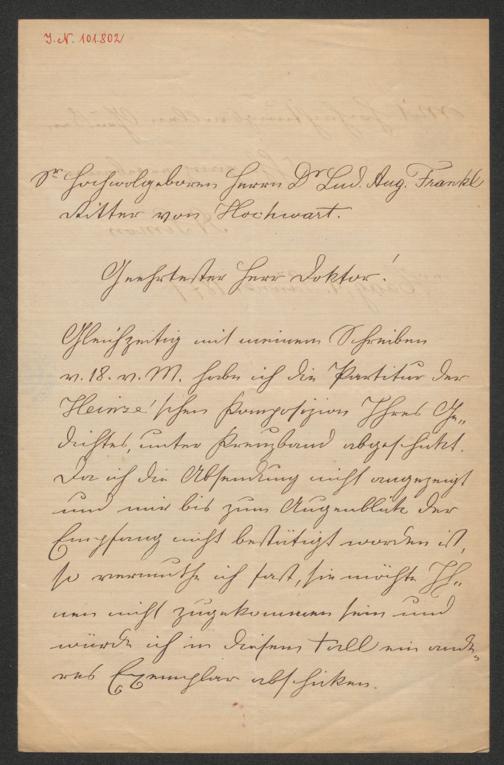 J. N. 101.802
Sr Hochwolgeboren Herrn Dr Lud. Aug. Frankl
Ritter von Hochwart.
Geehrtester Herr Doktor!
Gleichzeitig mit meinem Schreiben
v. 18. v. M. habe ich die Partitur der
Heinze'schen Komposizion Ihres Ge„
dichtes, unter Kreuzband abgeschikt.
Da ich die Absendung nicht angezeigt
und mir bis zum Augenblik der
Empfang nicht bestätigt worden ist,
so vermuthe ich fast, sie möchte Ih„
nen nicht zugekommen sein und
würde ich in diesem Fall ein ande„
res Exemplar abschiken.